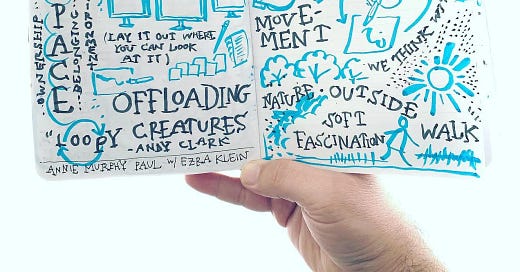 SPACE
OWNERSHIP
BELONGING
(LAY IT OUT WHERE
YOU CAN LOOK
AT IT)
OFFLOADING
"LOOPY CREATURES"
-ANDY CLARK
ANNIE MURPHY PAUL W/ EZRA KLEIN
MOVE-
MENT
WE THINK W/
NATURE · OUTSIDE
SOFT
FASCINATION
WALK